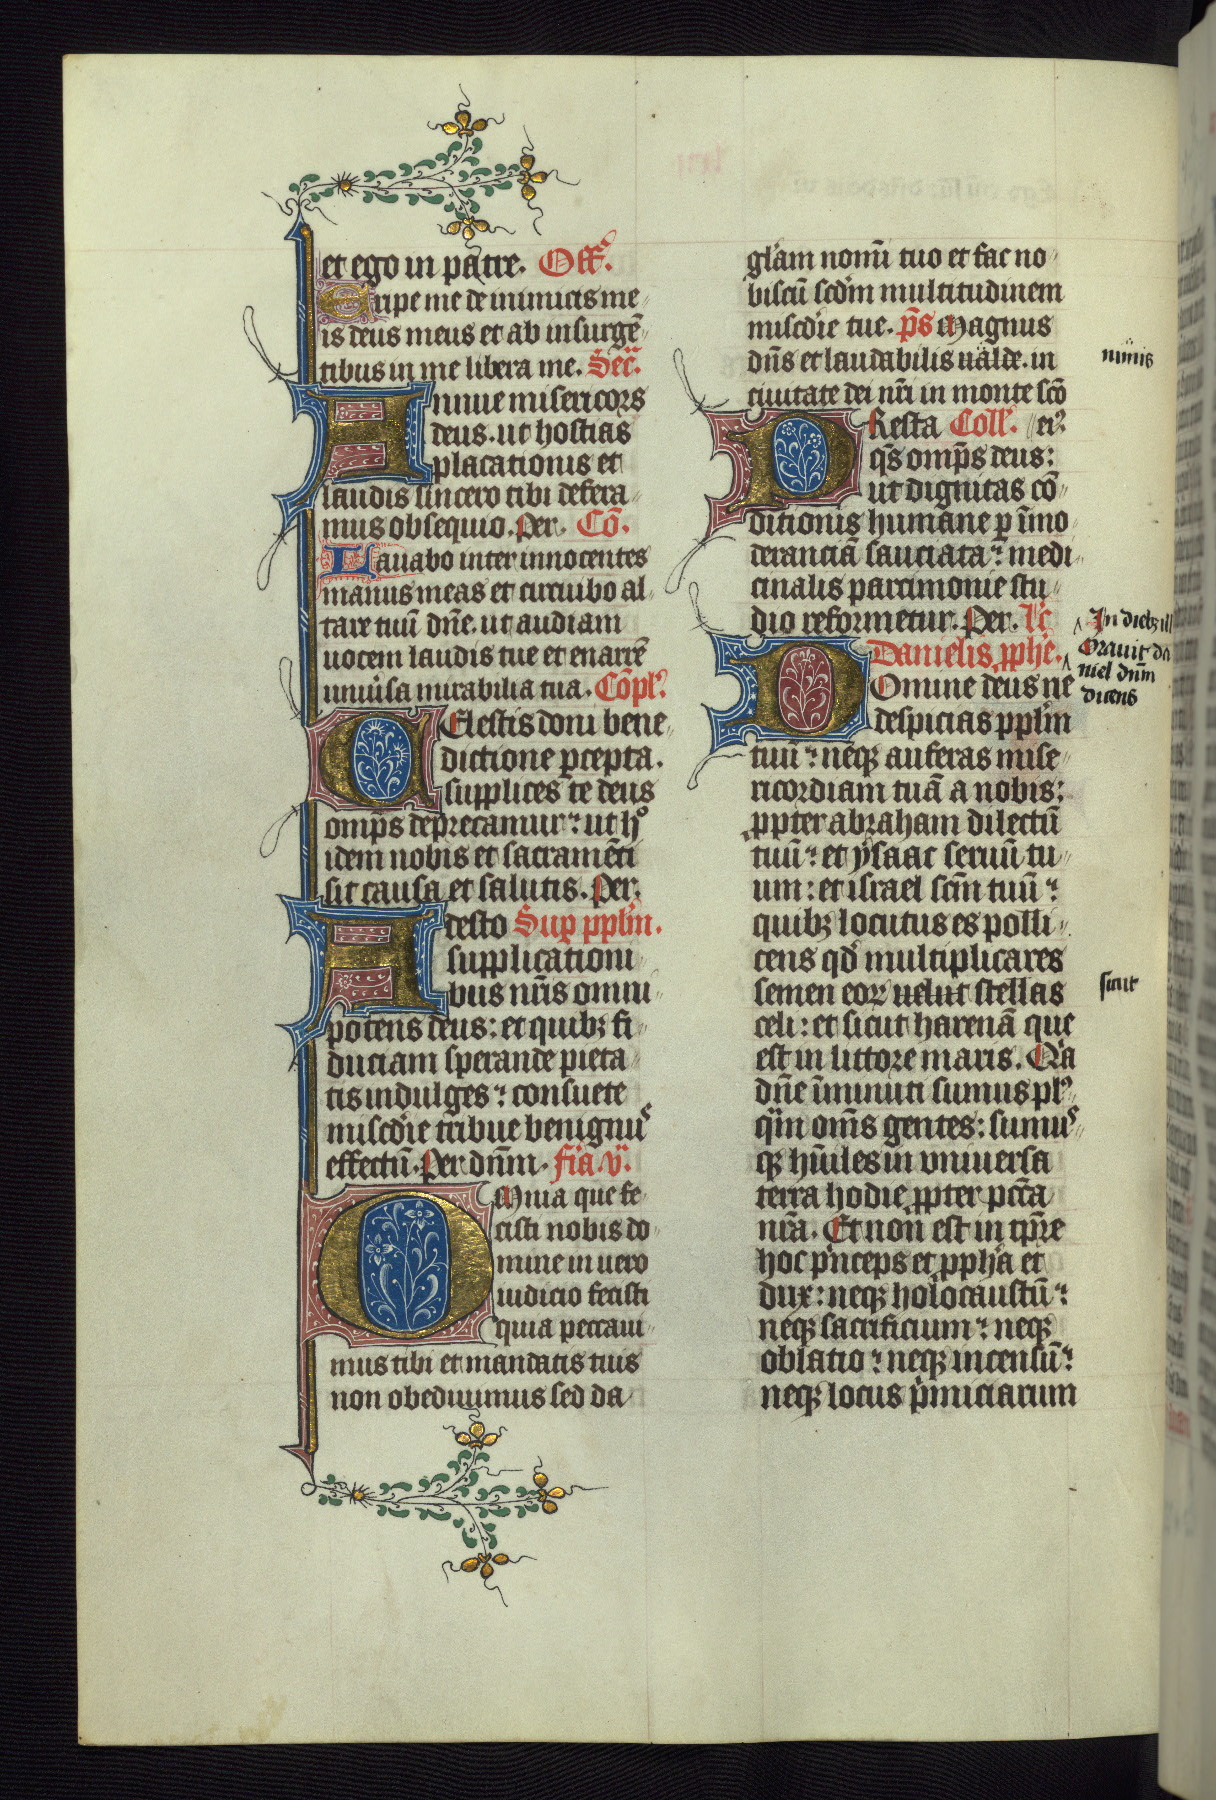 et ego in patre. Off̄.
Eripe me de inimicis me
is deus meus et ab insurgē
tibus in me libera me. Secr̄.
Annue misericors
deus. ut hostias
placationis et
laudis sincero tibi defera
mus obsequio. Per. Cō.
Lavabo inter innocentes
manus meas et circuibo al
tare tuū dn̄e. ut audiam
uocem laudis tue et enarrē
uniu̾sa mirabilia tua. Cōpl̾.
CElestis doni bene
dictione ꝑcepta.
supplices te deus
omp̄s deprecamur: ut hͦ
idem nobis et sacramēti
sit causa et salutis. Per.
Adesto Sup ppl̄m.
supplicationi
bus nr̄is omni
potens deus: et quibꝫ fi
duciam sperande pieta
tis indulges: consuete
mis̄cdie tribue benignus
effectū. Per dn̄m. Fr̄ia .v̄.
OMnia que fe
cisti nobis do
mine in uero
iudicio fecisti
quia peccaui
mus tibi et mandatis tuis
non obediuimus sed da
gl̄am nom̄i tuo et fac no
biscū scd̄m multitudinem
mis̄cdie tue. p̄s Magnus
dn̄s et laudabilis ualde. in
nimis
ciuitate dei nr̄i in monte scō
PResta Coll̾. ei̾
q̄s omp̄s deus:
ut dignitas cō
ditionis humane ꝑ īmo
deranciā sauciata: medi
cinalis parcimonie stu
dio reformetur. Per. Lc̄
In diebꝫ ill
Danielis ꝓphē.
Orauit da
niel dn̄m
dicens
DOmine deus ne
despicias ppl̄m
tuū: neqꝫ auferas mise
ricordiam tuā a nobis:
ꝓpter abraham dilectū
tuū: et ysaac seruū tu
um: et israel sc̄m tuū:
quibꝫ locutus es polli
cens qd̾ multiplicares
semen eorꝝ uelut stellas
sicut
celi: et sicut harenā que
est in littore maris. Qr̄a
dn̄e īminuti sumus pl̾
q̄m om̄s gentes: sumus
qꝫ hūiles in vniuersa
terra hodie ꝓpter pcc̄a
nr̄a. Et non est in tp̄re
hoc pͥnceps et ꝓpha et
dux: neqꝫ holocaustū:
neqꝫ sacrificium: neqꝫ
oblatio: neqꝫ incensū:
neqꝫ locus pͥmiciarum